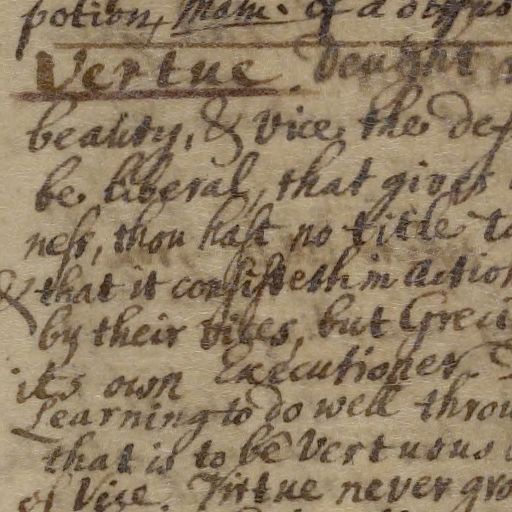 potion, Mam. of a
Vertue. DoubtIt
beauty, & vice the def
be liberal, that gives
ness, thou hast no title to
& that it consisteth in action
by their vices, but Greci
its own Executioner.
Learning to do well throu
that is to be Vertuous
of Vice. Virtue never gro